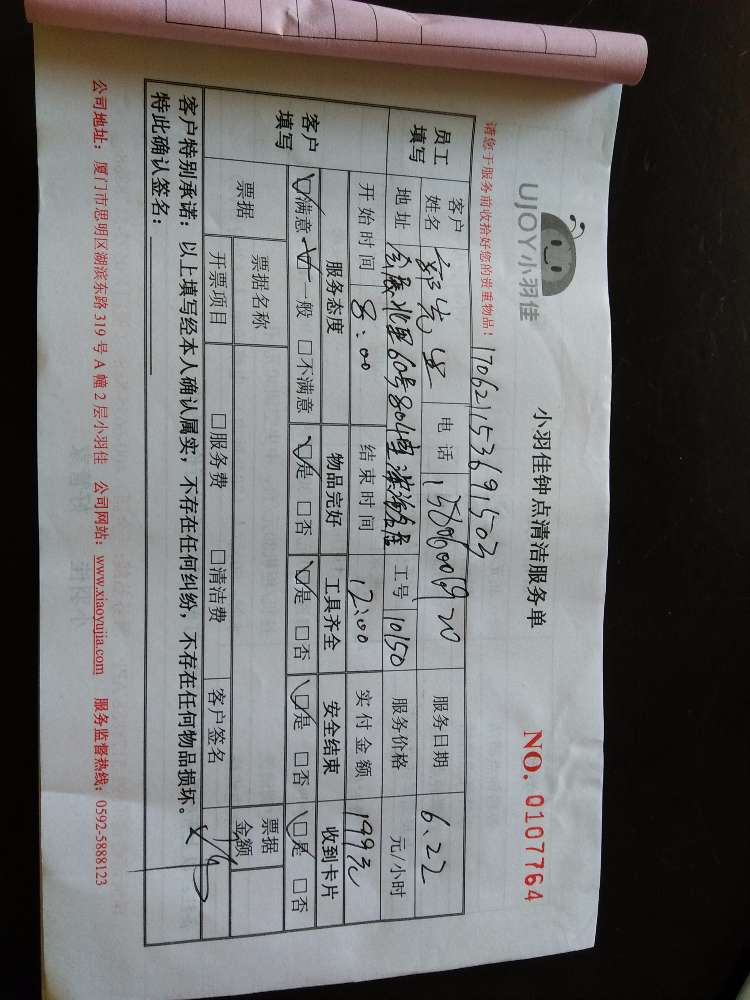 UJOY小羽佳
小羽佳钟点清洁服务单
NO. 0107764
请您于服务前收拾好您的贵重物品！
17062153691503
员工填写 客户姓名 郑先生 电话 服务日期 6.22
地址 北里60号804 工号 10150 服务价格 元/小时
开始时间 8:00 结束时间 12:00 实付金额 199元
客户填写 服务态度 物品完好 工具齐全 安全结束 收到卡片
☑满意 ☑一般 □不满意 ☑是 □否 ☑是 □否 ☑是 □否 ☑是 □否
票据 票据名称 票据金额
开票项目 □服务费 □清洁费 客户签名
客户特别承诺：以上填写经本人确认属实，不存在任何纠纷，不存在任何物品损坏。
特此确认签名：
公司地址：厦门市思明区湖滨东路319号A幢2层小羽佳 公司网站：www.xiaoyujia.com 服务监督热线：0592-5888123